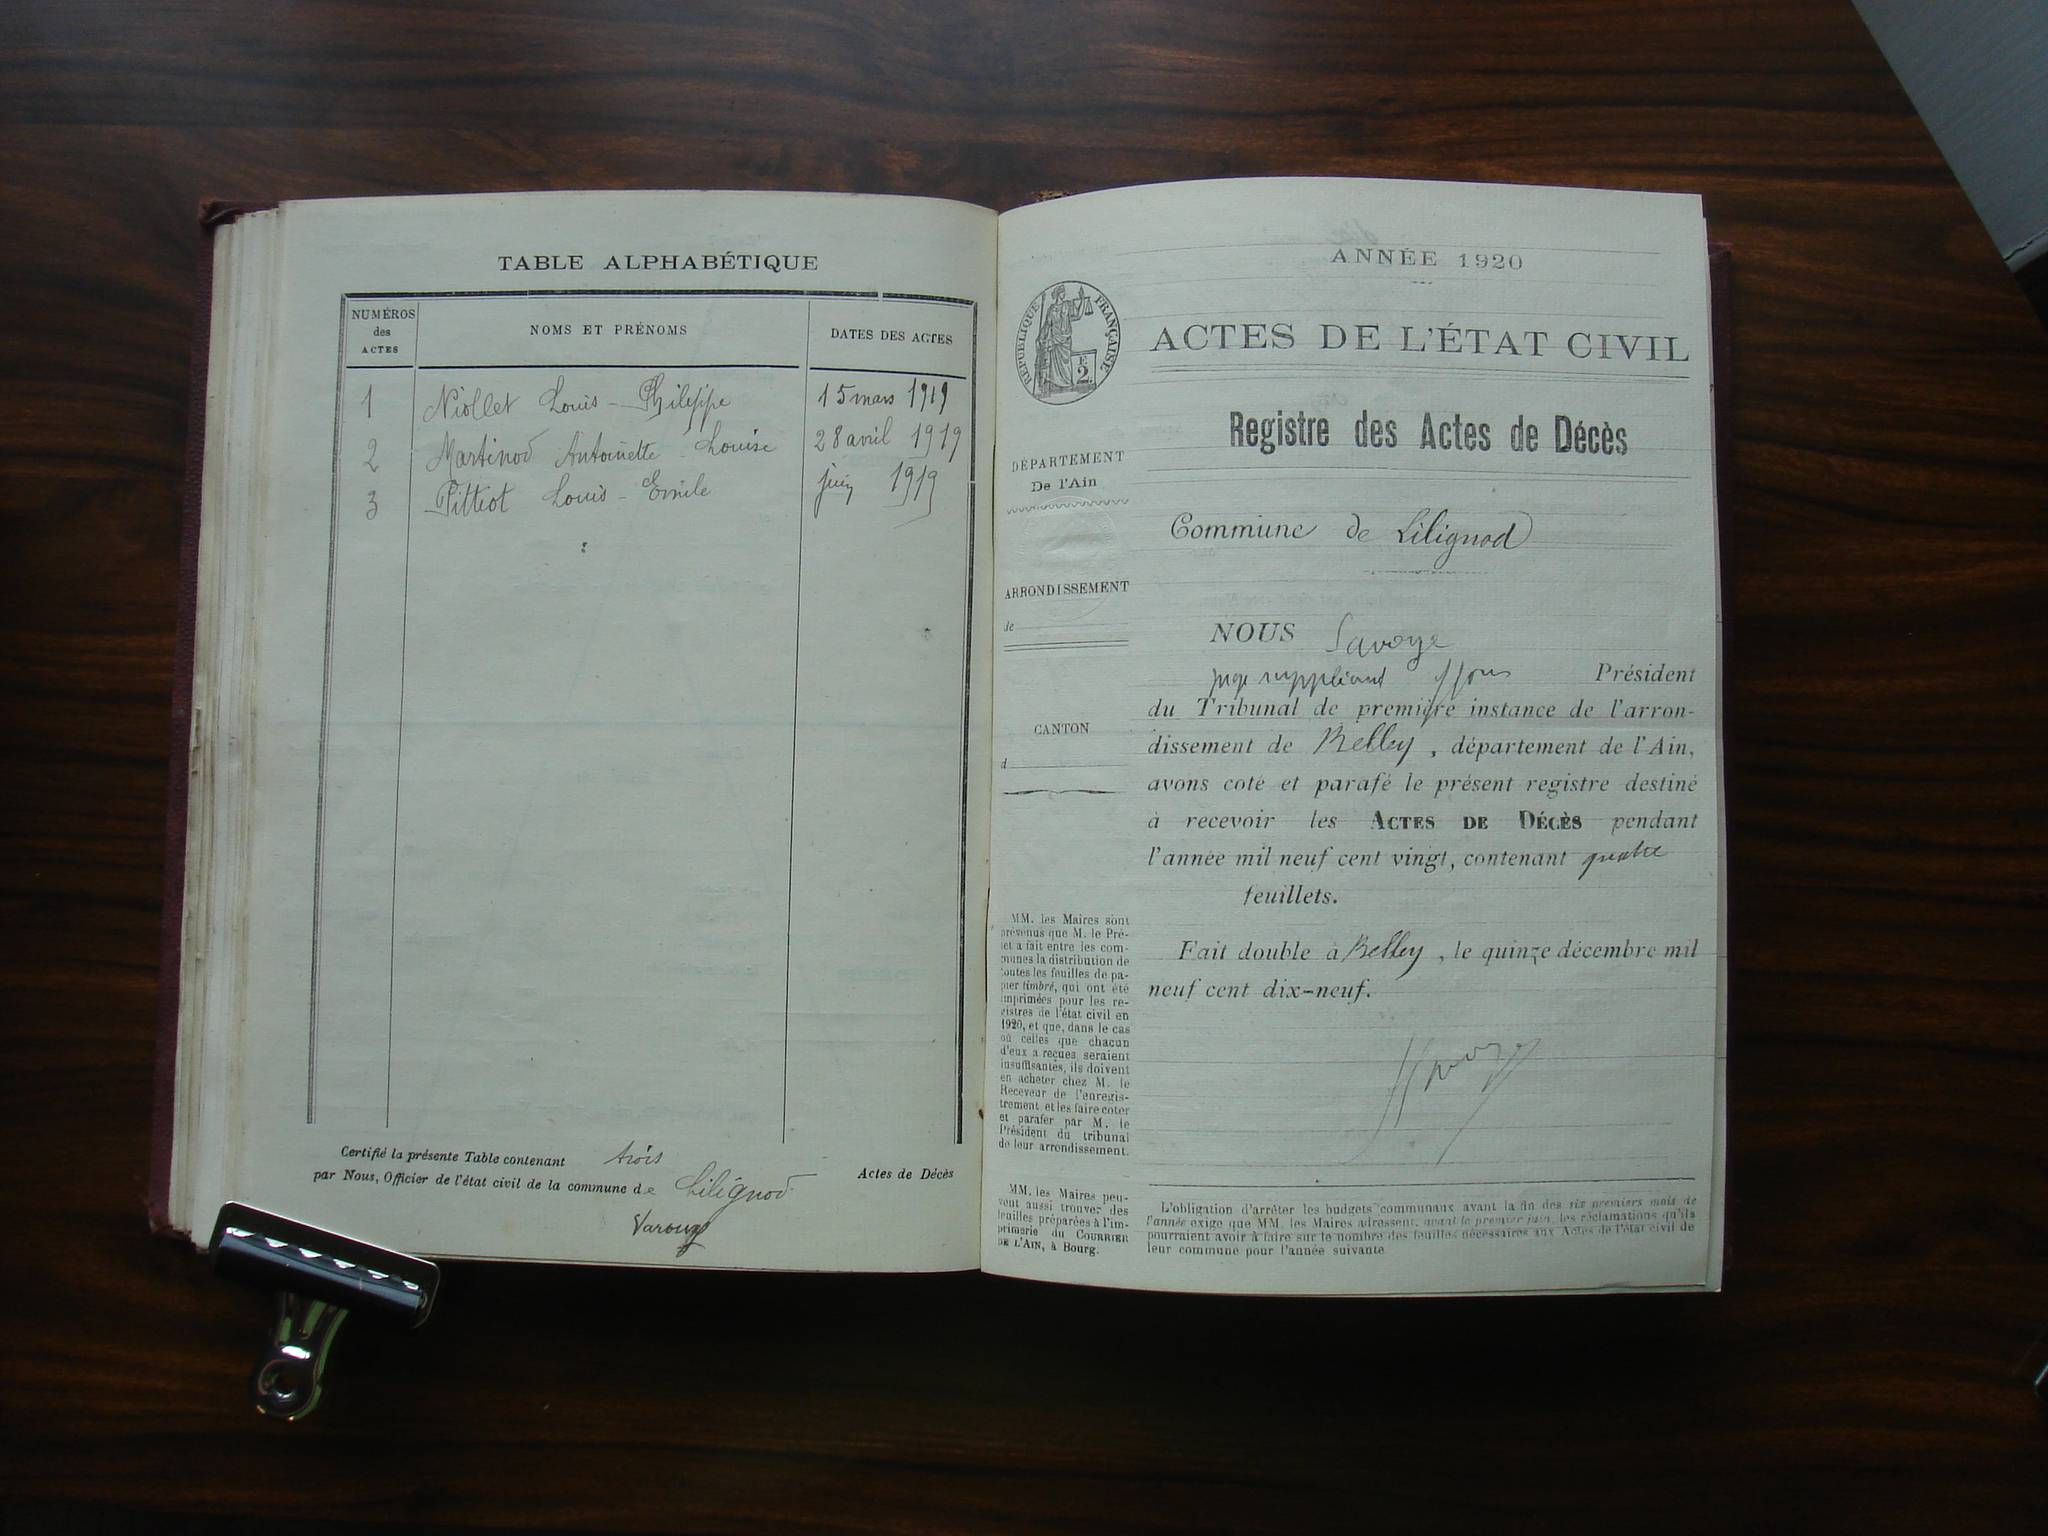 TABLE ALPHABÉTIQUE
NUMÉROS des ACTES
NOMS ET PRÉNOMS
DATES DES ACTES
1 Niollet Louis-Philippe 15 mars 1919
2 Martinod Antoinette-Louise 28 avril 1919
3 Pittiot Louis-Emile juin 1919
Certifié la présente Table contenant trois Actes de Décès
par Nous, Officier de l'état civil de la commune de Lilignod
ANNÉE 1920
RÉPUBLIQUE FRANÇAISE
ACTES DE L'ÉTAT CIVIL
Registre des Actes de Décès
DÉPARTEMENT
De l'Ain
Commune de Lilignod
ARRONDISSEMENT
de
CANTON
d
NOUS Savoye
juge suppléant Président
du Tribunal de première instance de l'arron-
dissement de Belley, département de l'Ain,
avons coté et parafé le présent registre destiné
à recevoir les ACTES DE DÉCÈS pendant
l'année mil neuf cent vingt, contenant quatre
feuillets.
Fait double à Belley, le quinze décembre mil
neuf cent dix-neuf.
MM. les Maires sont
prévenus que M. le Pré-
fet a fait entre les com-
munes la distribution de
toutes les feuilles de pa-
pier timbré, qui ont été
imprimées pour les re-
gistres de l'état civil en
1920, et que, dans le cas
où celles que chacun
d'eux a reçues seraient
insuffisantes, ils doivent
en acheter chez M. le
Receveur de l'enregis-
trement et les faire coter
et parafer par M. le
Président du tribunal
de leur arrondissement.
MM. les Maires peu-
vent aussi trouver des
feuilles préparées à l'im-
primerie du COURRIER
DE L'AIN, à Bourg.
L'obligation d'arrêter les budgets communaux avant la fin des six premiers mois de
l'année exige que MM. les Maires adressent, avant le premier juin, les réclamations qu'ils
pourraient avoir à faire sur le nombre des feuilles nécessaires aux Actes de l'état civil de
leur commune pour l'année suivante